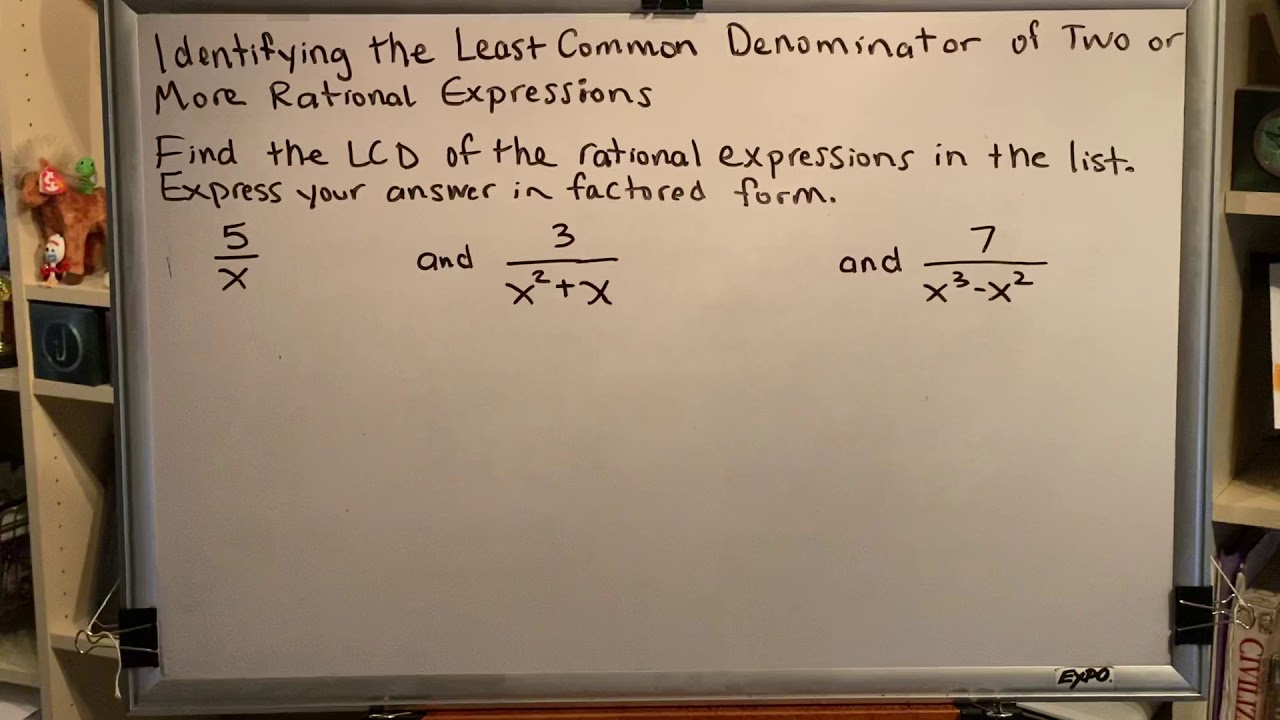 Identifying the Least Common Denominator of Two or
More Rational Expressions
Find the LCD of the rational expressions in the list.
Express your answer in factored form.
5/x and 3/(x²+x) and 7/(x³-x²)
EXPO